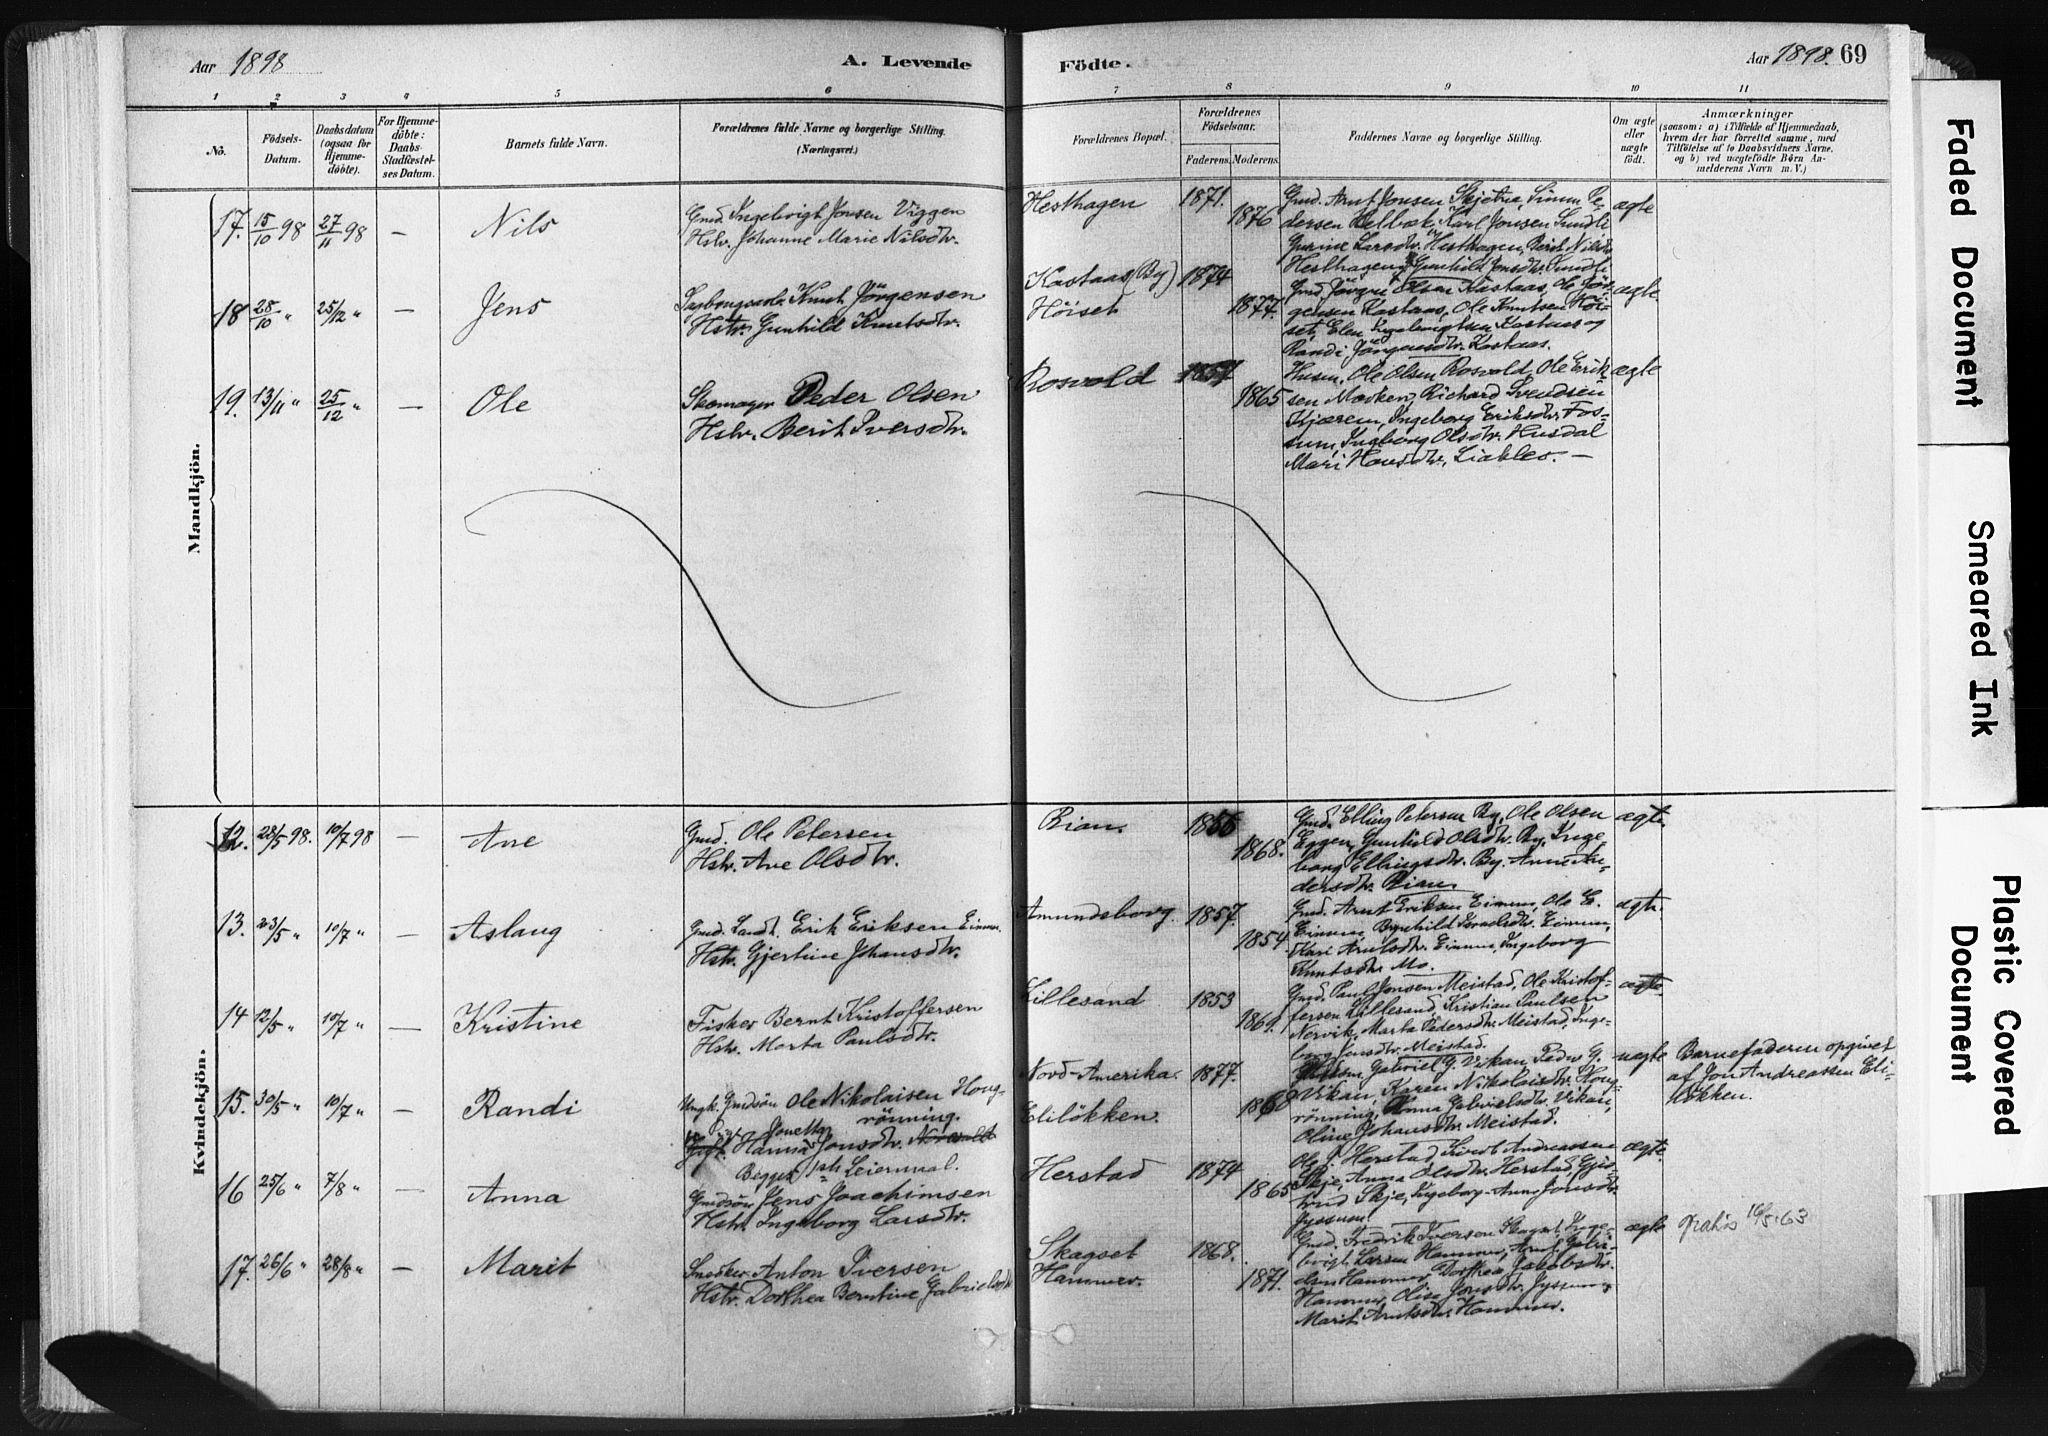 Aar 1898
A. Levende
Födte.
Aar 1898. 69
1 2 3 4 5 6 7 8 9 10 11
No.
Födsels-
Datum.
Daabsdatum
(ogsaa for
Hjemme-
döbte).
For Hjemme-
döbte:
Daabs-
Stadfæstel-
ses Datum.
Barnets fulde Navn.
Forældrenes fulde Navne og borgerlige Stilling.
(Næringsvei.)
Forældrenes Bopæl.
Forældrenes
Födselsaar.
Faderens. Moderens.
Faddernes Navne og borgerlige Stilling.
Om ægte
eller
uægte
födt.
Anmærkninger
(saasom: a) i Tilfælde af Hjemmedaab,
hvem der har forrettet samme, med
Tilföielse af to Daabsvidners Navne,
og b) ved uægtefödte Börn An-
melderens Navn m. V.)
Mandkjön.
17. 15/10 98 27/11 98 — Nils
Gmd. Ingebrigt Jonsen Viggen
Hstr. Johanne Marie Nilsdtr.
Hesthagen 1871. 1876
Gmd. Arnt Jonsen Skjetne, Simon Pe-
dersen Kelbæk, Karl Jonsen Sundli
Gurine Larsdtr. Hesthagen, Berit Nilsdtr
Hesthagen, Gunhild Jonsdtr. Sundli
ægte
18 28/10 " 25/12 " — Jens
Knut Jörgensen
Hstr. Gunhild Knutsdtr.
Kastaas (By) 1874
Höiset 1877.
Gmd. Jörgen Olsen Kastaas, Ole Jör-
gensen Kastaas, Ole Knutsen Höi-
set, Elen Ingebrigtsen Kastaas og
Randi Jörgensdtr. Kastaas.
ægte
19. 13/11 " 25/12 " — Ole
Skomager Peder Olsen
Hstr. Berit Iversdtr.
Rosvold 1865
Husm. Ole Olsen Rosvold, Ole Erik-
sen Moeken, Richard Svendsen
Kjærem, Ingeborg Eriksdtr. Fos-
sum, Ingborg Olsdtr. Husdal
Mari Hansdtr. Liakleo. —
ægte
Kvindekjön.
12. 28/5 98. 10/7 98 — Ane
Gmd. Ole Petersen
Hstr. Ane Olsdtr.
Rian. 1868.
Gmd. Elling Petersen By, Ole Olsen
Eggen, Gunhild Olsdtr. By, Inge
borg Ellingsdtr. By. Anne An-
dersdtr. Rian.
ægt.
13. 23/5 " 10/7 " — Aslaug
Gmd. Landh. Erik Eriksen Einum.
Hstr. Gjertine Johansdtr.
Amundsborg. 1857. 1854
Gmd. Arnt Eriksen Einum, Ole E.
Einum, Bynhild Iversdtr. Einum,
Kari Arntsdtr. Einum, Ingeborg
Knutsdtr. Mo.
ægte.
14 12/5 " 10/7 " — Kristine
Fisker Bernt Kristoffersen
Hstr. Marta Paulsdtr.
Lillesand 1853 1860.
Gmd. Paul Jonsen Meistad, Ole Kristof-
fersen Lillesand, Kristian Paulsen
Nervik, Marta Pedersdtr. Meistad, Inge-
borg Jonsdtr. Meistad.
ægte.
15. 30/5 " 10/7 " — Randi
Ungk. Gmdsön Ole Nikolaisen Houg-
rönning.
Hanna Jonsdtr.
Begges 1ste Leiermaal.
Nord-Amerika. 1877.
Eliløkken. 1868
Gabriel G. Vikan, Peder G.
Vikan, Karen Nikolaisdtr. Houg-
rönning, Anna Gabrielsdtr. Vikan,
Oline Johansdtr. Meistad.
uægte
Barnefaderen opgivet
af Jon Andreassen Eli-
løkken.
16 25/6 " 7/8 " — Anna
Gmdsön Jens Joachimsen
Hstr. Ingeborg Larsdtr.
Herstad 1874 1865
Ole J. Herstad, Sivert Andreassen
Skje, Anna Olsdtr. Herstad, Gjer-
trud Skje, Ingeborg-Anna Jonsdtr.
Gyssum.
ægte.
17. 26/6 " 28/8 " — Marit
Snedker Anton Iversen
Hstr. Dorthea Berntine Gabrielsdtr
Skagset 1868.
Hammer. 1871.
Gmd. Fredrik Iversen Skagset, Inge-
brigt Larsen Hammer, Arnt Gabri-
elsen Hammer, Dorthea Jakobsdtr.
Hammer, Olise Jonsdtr. Gyssum,
Marit Arntsdtr. Hammer.
ægte
Gratis 16/5-63
Faded Document
Smeared Ink
Plastic Covered
Document